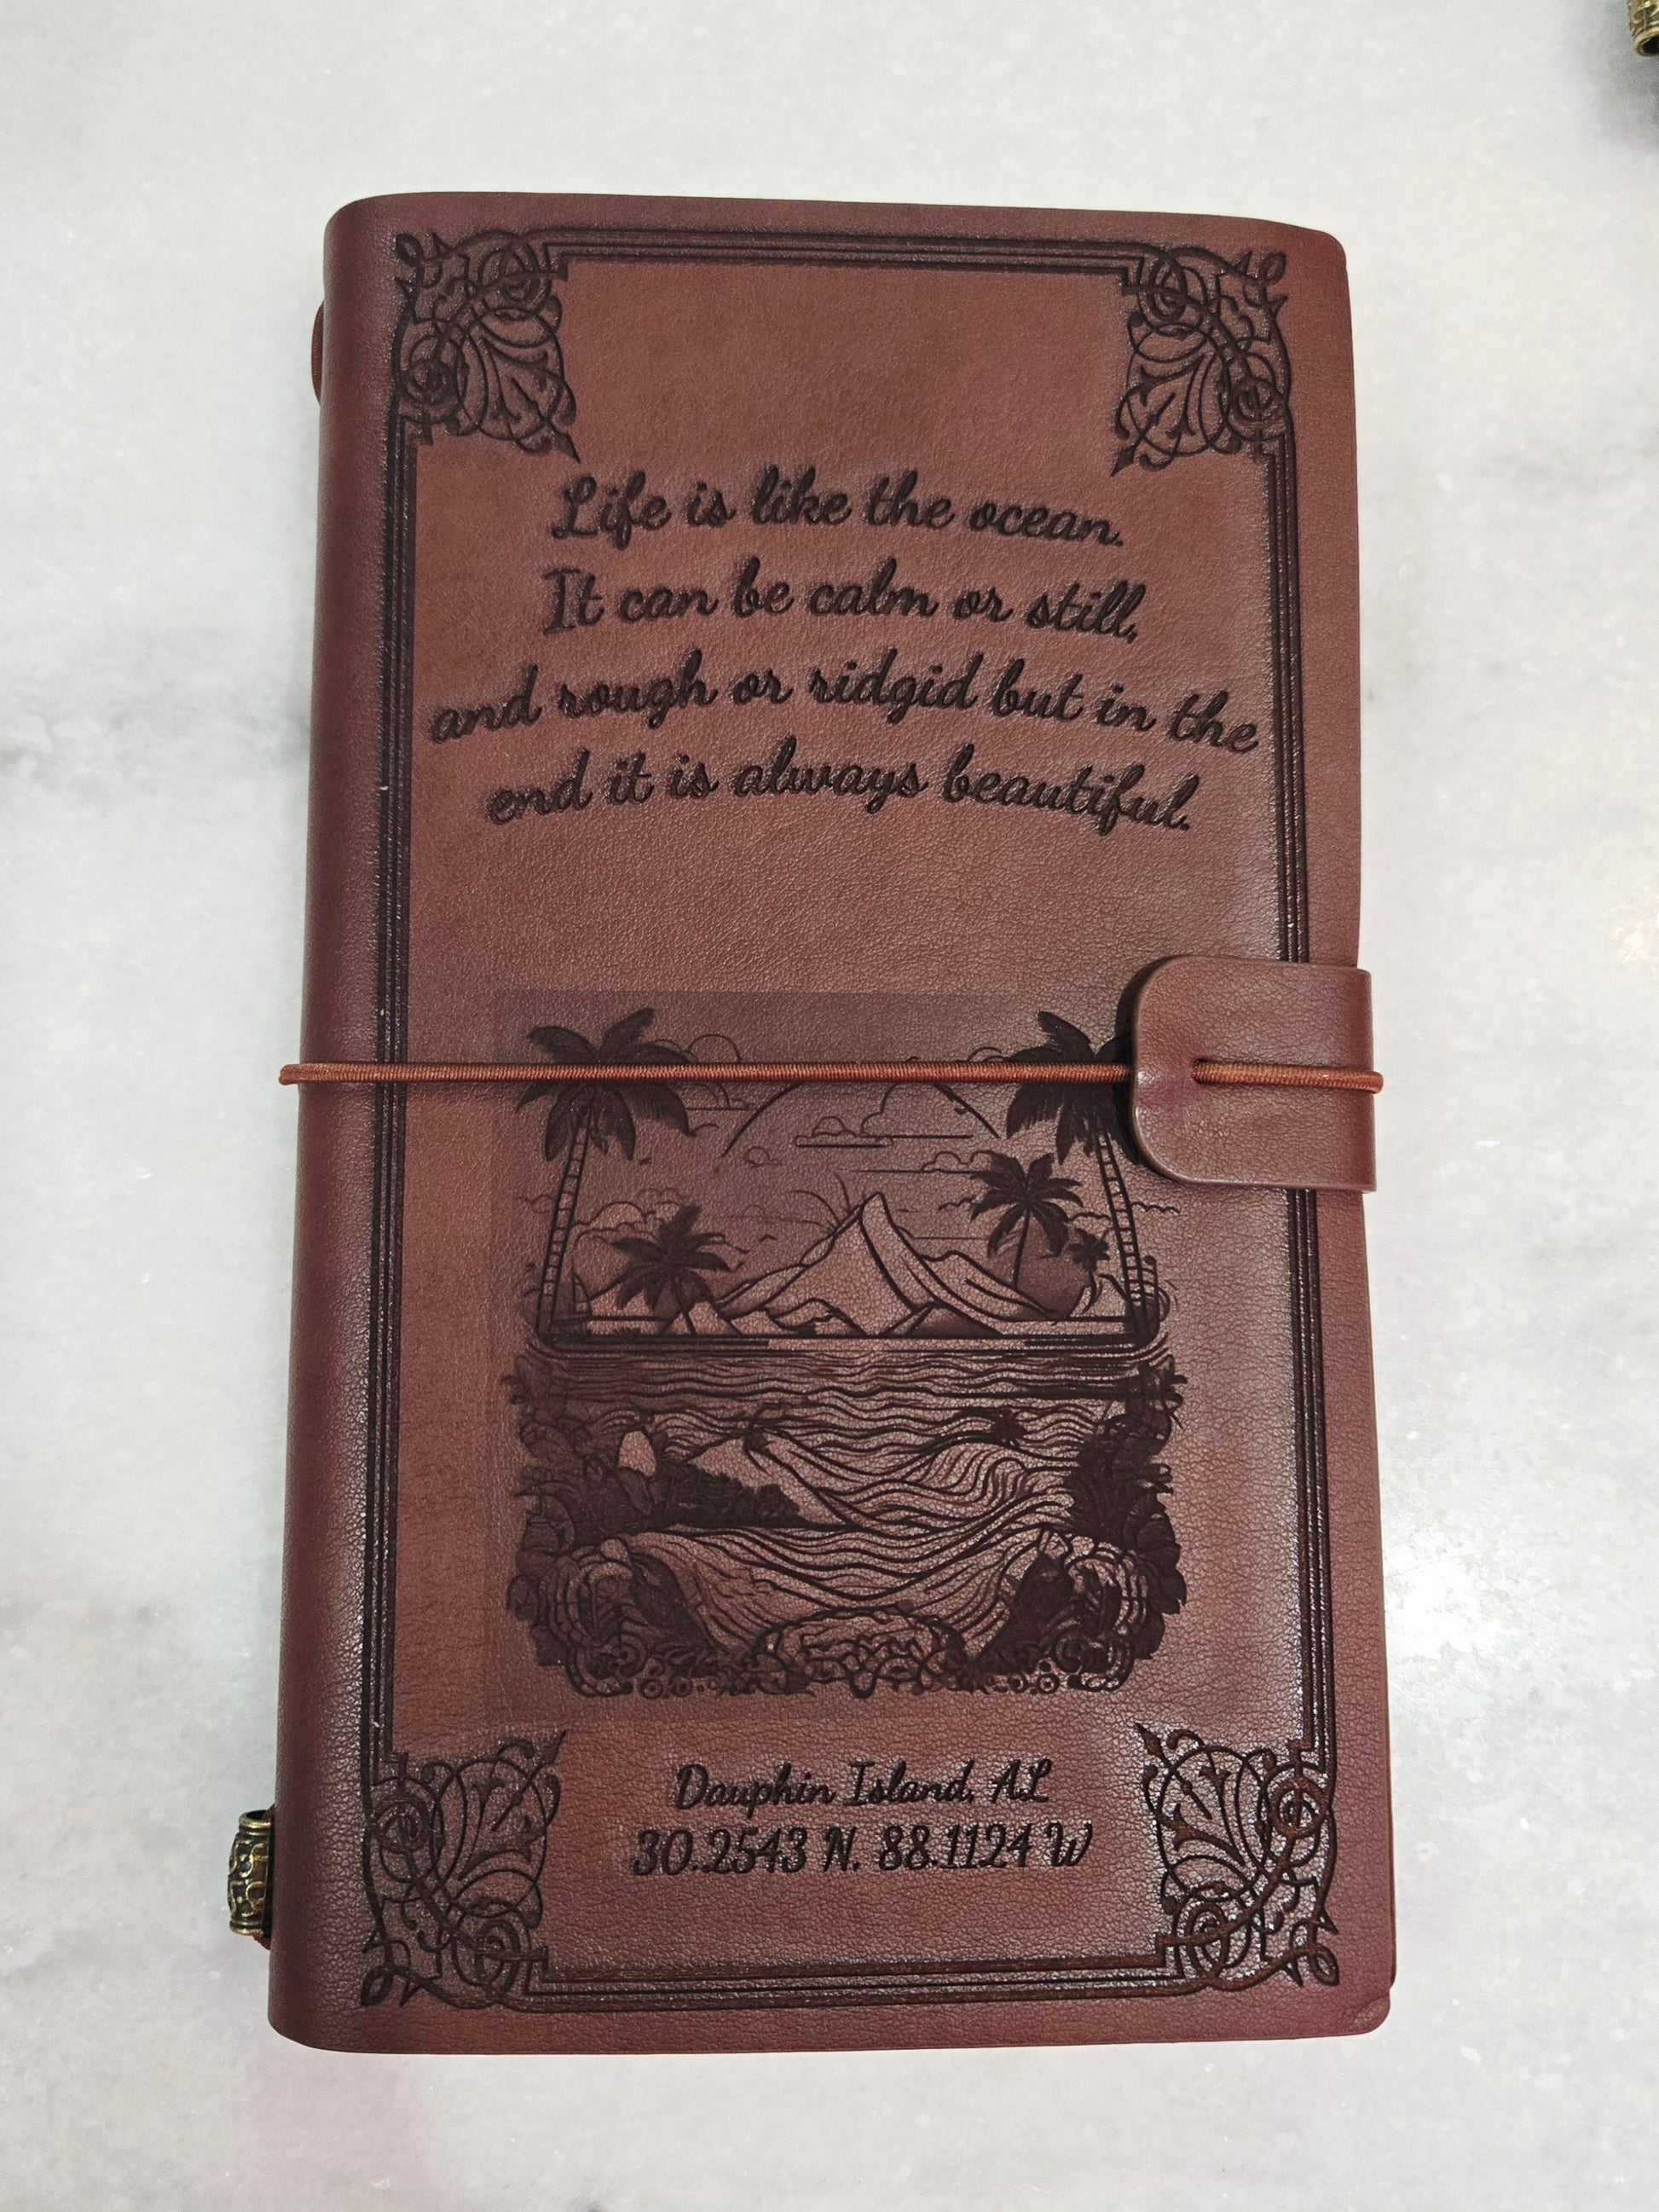 Life is like the ocean.
It can be calm or still,
and rough or ridgid but in the
end it is always beautiful.
Dauphin Island, AL
30.2543 N. 88.1124 W